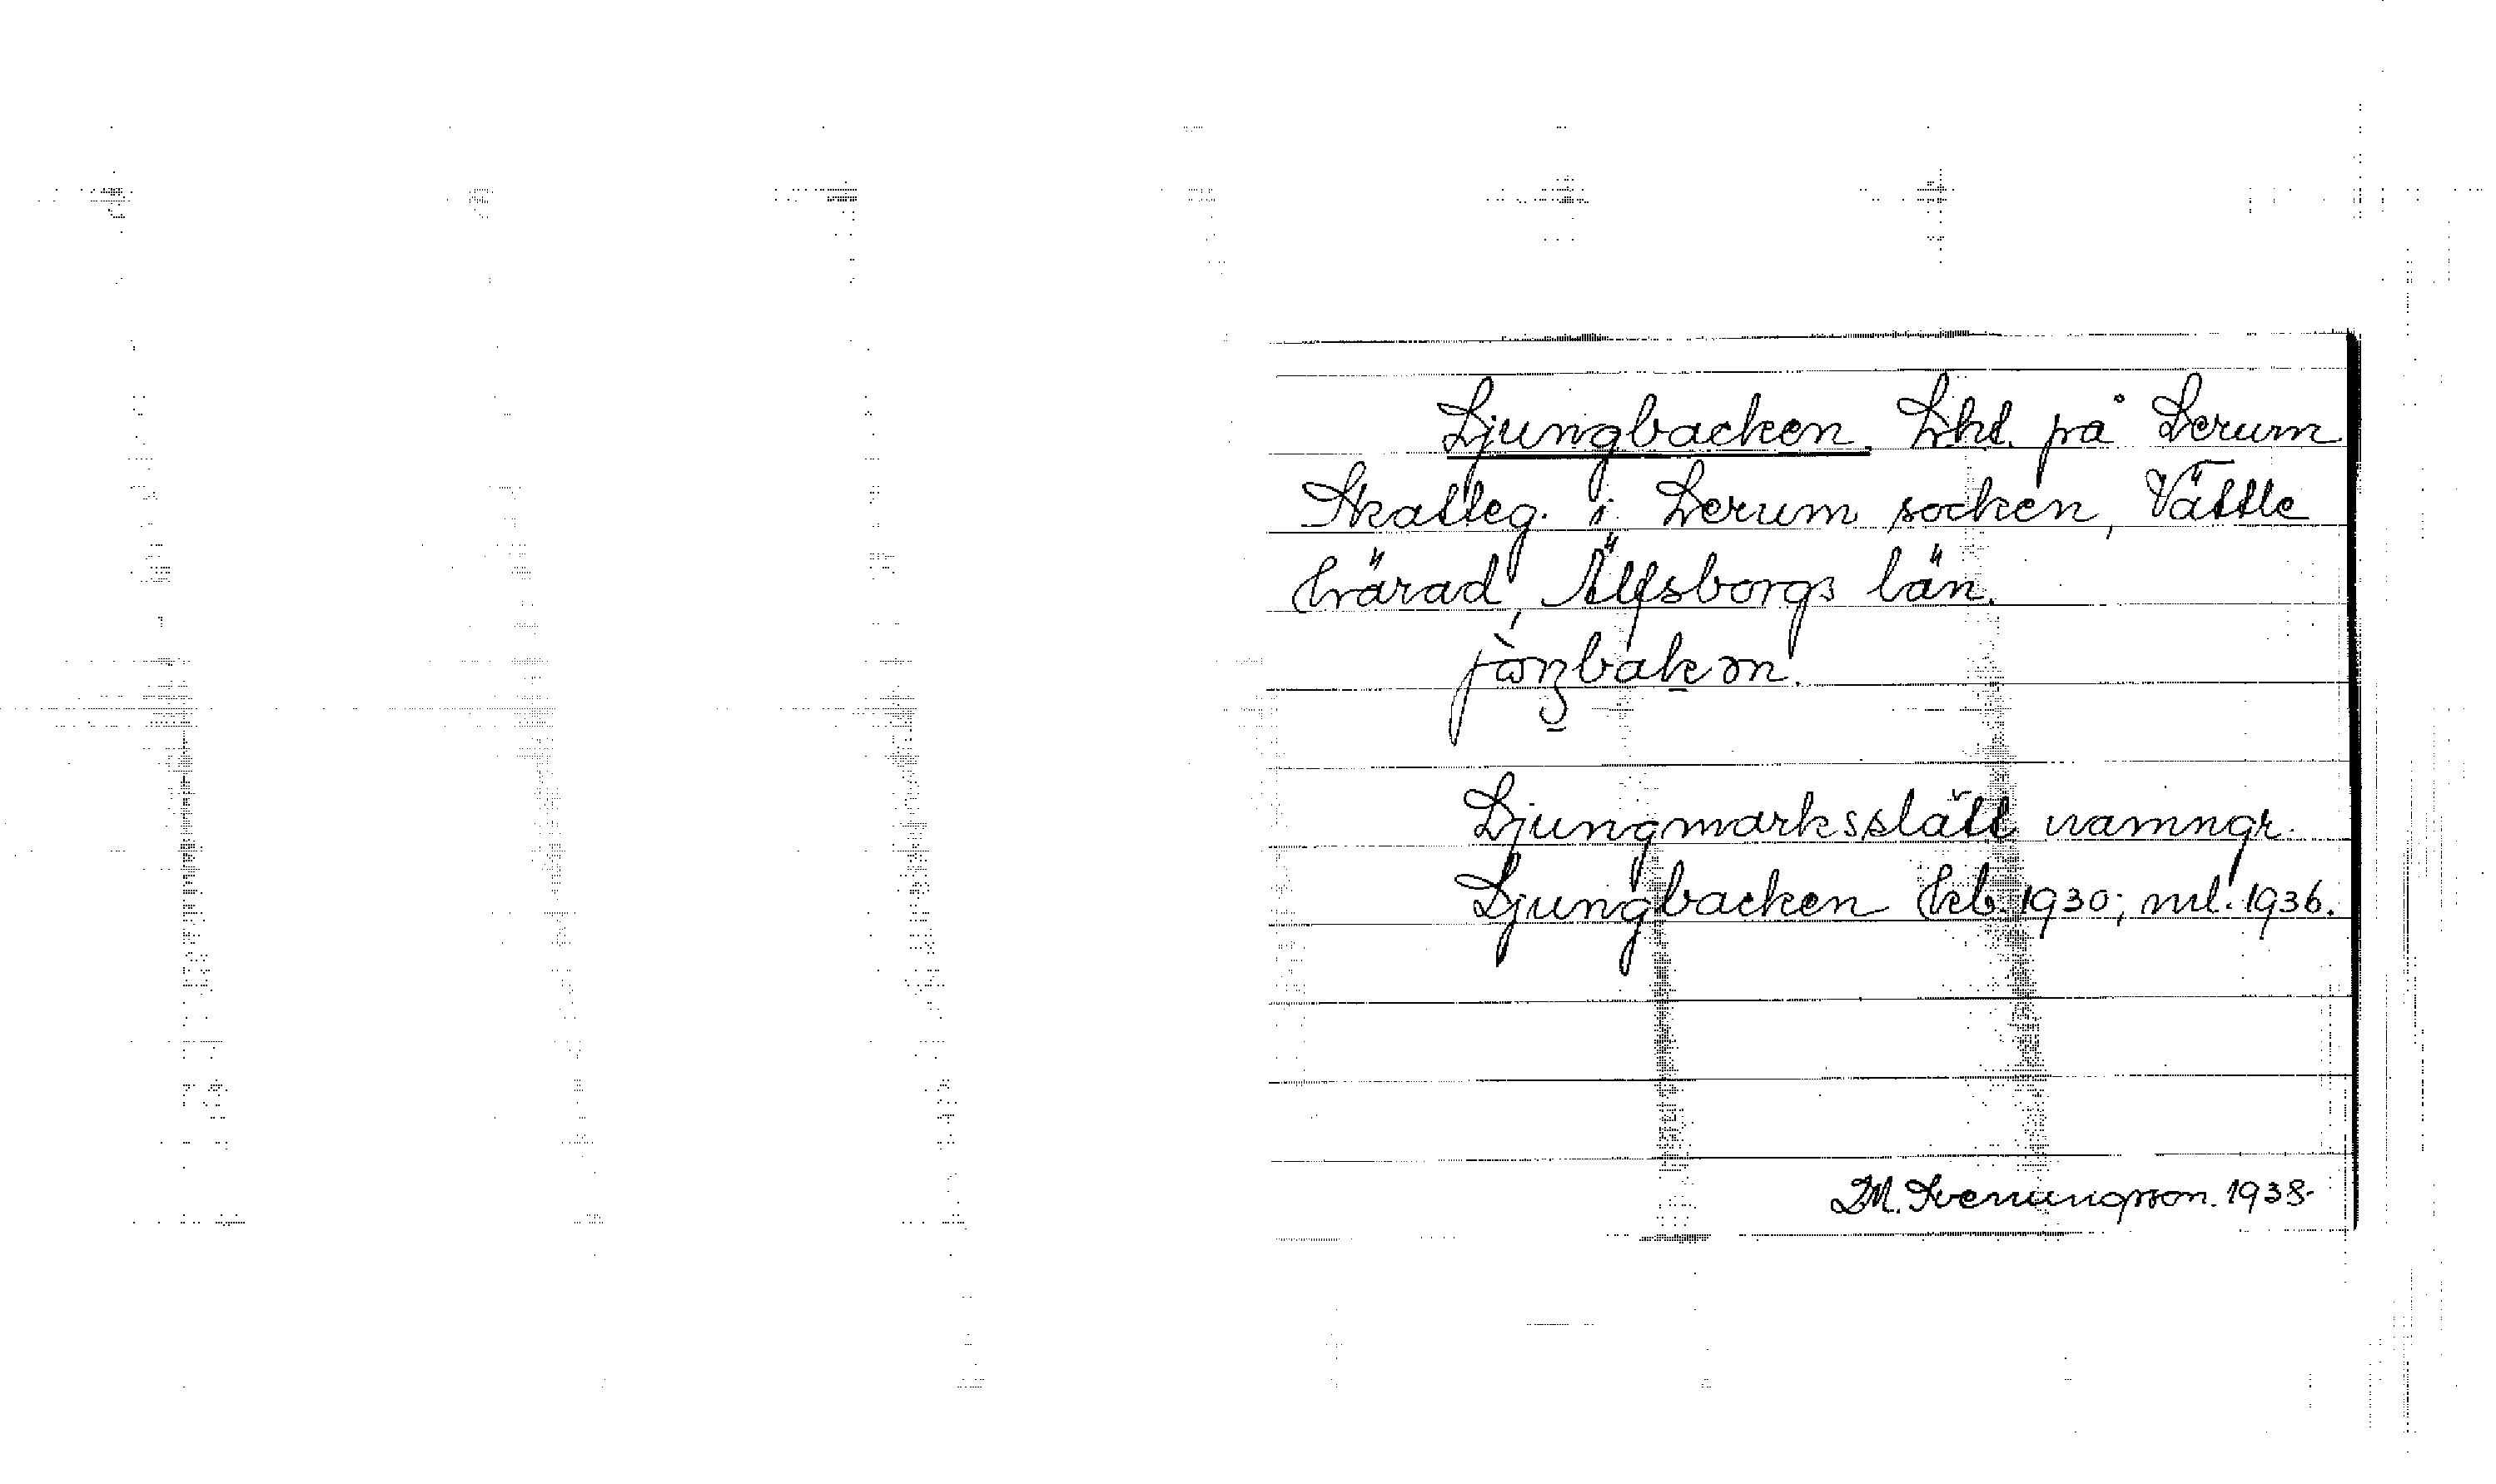 Ljungbacken. Lht. på Lerum
Skatteg. i Lerum socken, Vättle
härad, Älfsborgs län.
Ljungmarksslätt namngr.
Ljungbacken Hkb. 1930; ml. 1936.
M. Kvenungsson. 1938